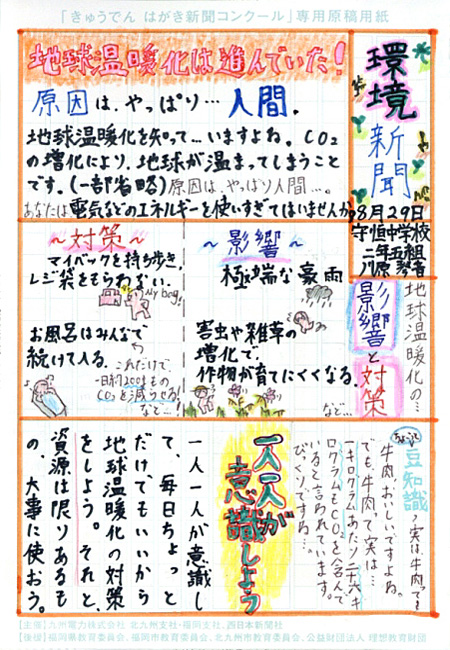 「きゅうでん はがき新聞コンクール」専用原稿用紙
環境新聞
8月29日
守恒中学校
二年五組
地球温暖化は進んでいた!
原因は、やっぱり…人間。
地球温暖化を知って…いますよね。CO₂
の増化により、地球が温まってしまうこと
です。(一部省略)原因は、やっぱり人間…。
あなたは電気などのエネルギーを使いすぎてはいませんか?
地球温暖化の…
影響と対策
~影響~
極端な豪雨
害虫や雑草の
増化で、
作物が育てにくくなる。
など…
~対策~
マイバックを持ち歩き、
レジ袋をもらわない。
My bag!
お風呂はみんなで
続けて入る。
これだけで、
CO₂を減らせる!
など…
ちょこっと
豆知識
実は、牛肉でも
牛肉、おいしいですよね。
でも、牛肉って実は…
一キログラムあたり二十六キ
ログラムもCO₂を含んで
いると言われています。
びっくりですね…
一人一人が
意識しよう
一人一人が意識し
て、毎日ちょっと
だけでもいいから
地球温暖化の対策
をしよう。それと、
資源は限りあるも
の、大事に使おう。
【主催】九州電力株式会社 北九州支社・福岡支社、西日本新聞社
【後援】福岡県教育委員会、福岡市教育委員会、北九州市教育委員会、公益財団法人 理想教育財団